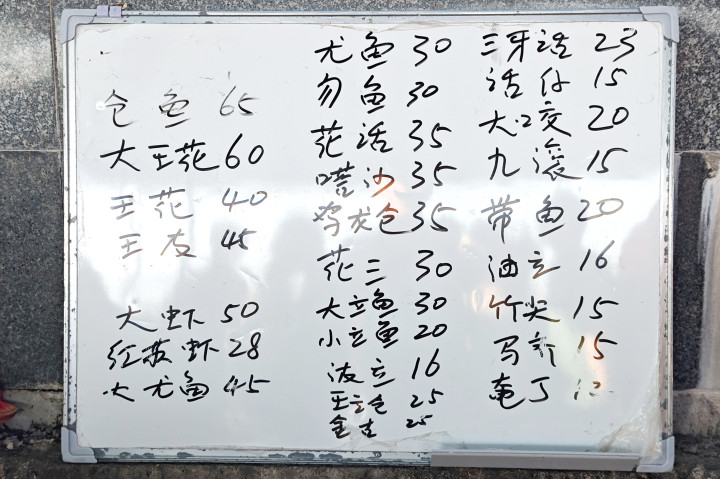 仓鱼 65
大王花 60
王花 40
王友 45
大虾 50
红茲虾 28
大尤鱼 45
尤鱼 30
勿鱼 30
花活 35
嗒沙 35
鸡龙仓 35
花三 30
大立鱼 30
小立鱼 20
波立 16
王立仓 25
金古 25
三牙活 25
活仔 15
大口交 20
九滚 15
带鱼 20
油立 16
竹尖 15
马介 15
丁